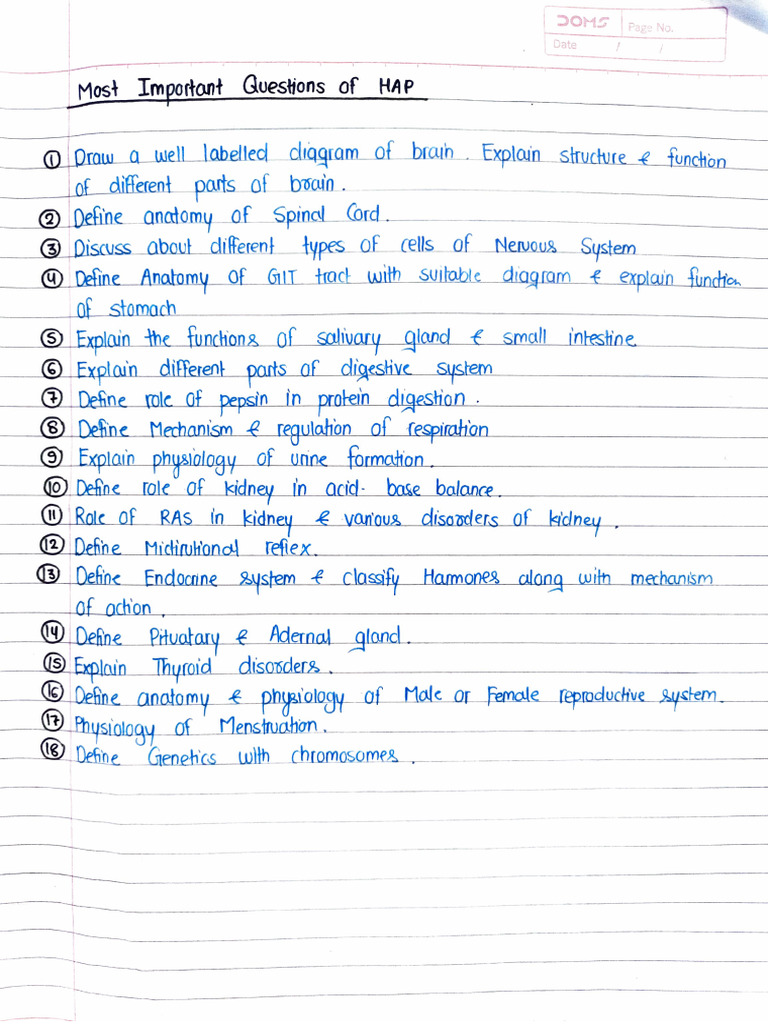 DOMS
Page No.
Date / /
Most Important Questions of HAP
① Draw a well labelled diagram of brain. Explain structure & function
of different parts of brain.
② Define anatomy of Spinal Cord.
③ Discuss about different types of cells of Nervous System
④ Define Anatomy of GIT tract with suitable diagram & explain function
of stomach
⑤ Explain the functions of salivary gland & small intestine
⑥ Explain different parts of digestive system
⑦ Define role of pepsin in protein digestion.
⑧ Define Mechanism & regulation of respiration
⑨ Explain physiology of urine formation.
⑩ Define role of kidney in acid-base balance.
⑪ Role of RAS in kidney & various disorders of kidney.
⑫ Define Mictirutional reflex.
⑬ Define Endocrine system & classify Harmones along with mechanism
of action.
⑭ Define Pituatary & Adernal gland.
⑮ Explain Thyroid disorders.
⑯ Define anatomy & physiology of Male or Female reproductive system.
⑰ Physiology of Menstruation.
⑱ Define Genetics with chromosomes.